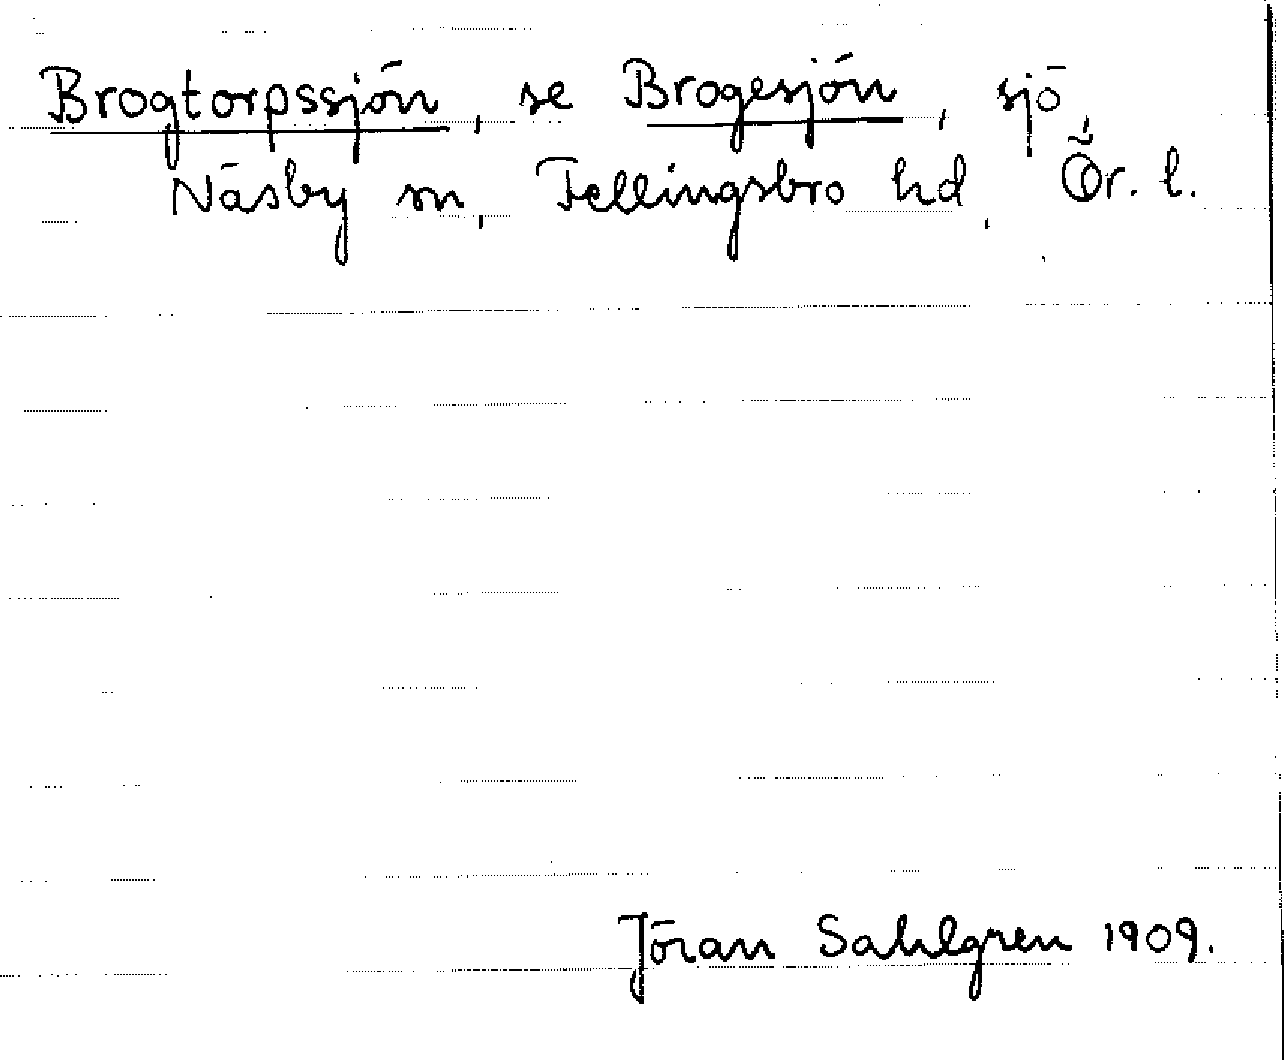 Brogtorpssjön, se Brogesjön, sjö
Näsby sn, Fellingsbro hd, Ör. l.
Jöran Sahlgren 1909.